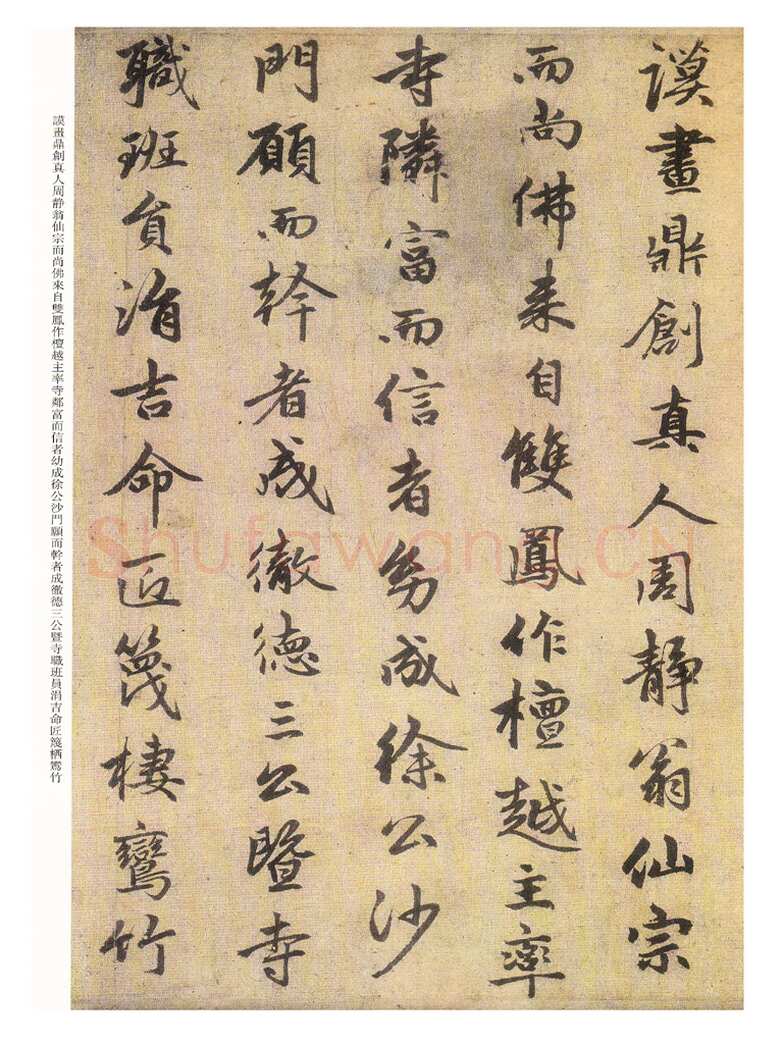 謨畫鼎創真人周静翁仙宗
而尚佛来自雙鳳作檀越主率
寺隣富而信者幼成徐公沙
門願而幹者成徹德三公暨寺
職班負涓吉命匠篾棲鸞竹
謨畫鼎創真人周静翁仙宗而尚佛來自雙鳳作檀越主率寺鄰富而信者幼成徐公沙門願而幹者成徹德三公暨寺職班員涓吉命匠篾栖鸞竹
Shufawang.CN